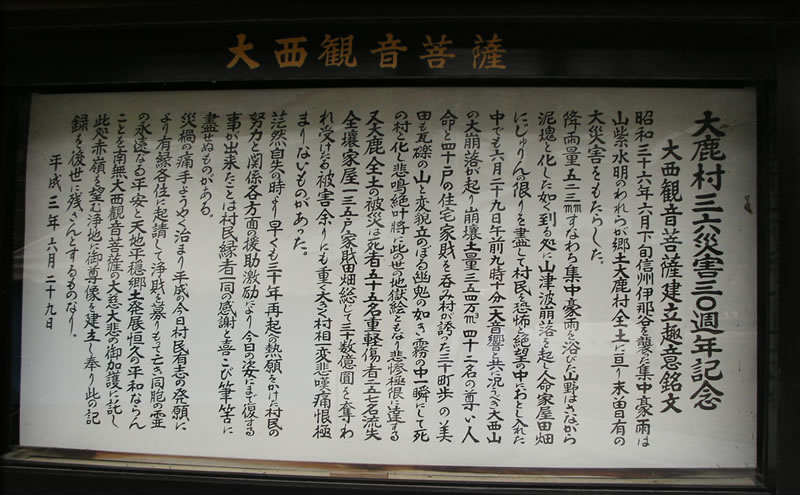 大西観音菩薩
大鹿村三六災害三〇週年記念
大西観音菩薩建立趣意銘文
昭和三十六年六月下旬信州伊那谷を襲た集中豪雨は
山紫水明のわれらが郷土大鹿村全土に亘り末曽有の
大災害をもたらした。
降雨量五二三㎜すなわち集中豪雨を浴びた山野はさながら
泥塊と化した如く到る処に山津波崩落を起し人命家屋田畑
にじゅりんの限りを盡して村民を恐怖と絶望の中におとし入れた
中でも六月二十九日午前九時十分一大音響と共に況うべき大西山
の大崩落が起り崩壊土量三二五四万㎥四十二名の尊い人
命と四十戸の住宅家財を呑み村が誇った三十町歩の美
田も瓦礫の山と変貌立のぼる幽鬼の如き霧の中一瞬にして死
の村と化し悲鳴絶叶将に此の世の地獄絵ともなり悲惨極限に達する
又大鹿全土の被災は死者五十五名重軽傷者二五七名流失
全壊家屋一三五戸家財田畑総じて三十数億圓を奪わ
れ受けたる被害余りにも重く大きく村相一変悲嘆痛恨極
まりないものがあった。
茫然自失の時より早くも三十年再起の熱願をかけた村民の
努力と関係各方面の援助激励により今日の姿にまで復する
事が出来たことは村民縁者一同の感謝と喜こび筆舌に
盡せぬものがある。
災禍の痛手ようやく治まり平成の今日村民有志の発願に
より有縁各位に起請して浄財を募りもって亡き同胞の霊
の永遠なる平安と天地平穏郷土発展恒久の平和ならん
ことを南無大西観音菩薩の大慈大悲の御加護に託し
此処赤嶺を望む浄地に御尊像を建立し奉り此の記
録を後世に残さんとするものなり。
平成三年六月二十九日